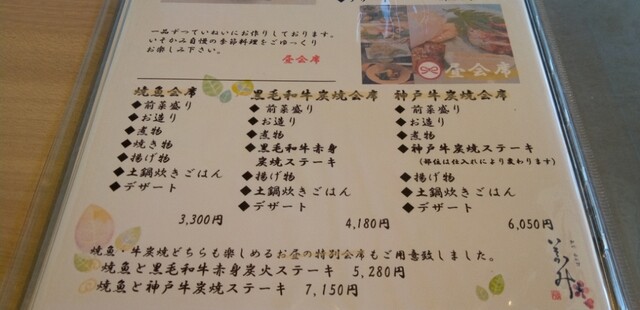 一品ずつていねいにお作りしております。
いそかみ自慢の季節料理をごゆっくり
お楽しみ下さい。
昼会席
昼会席
焼魚会席
◆前菜盛り
◆お造り
◆煮物
◆焼き物
◆揚げ物
◆土鍋炊きごはん
◆デザート
3,300円
黒毛和牛炭焼会席
◆前菜盛り
◆お造り
◆煮物
◆黒毛和牛赤身
炭焼ステーキ
◆揚げ物
◆土鍋炊きごはん
◆デザート
4,180円
神戸牛炭焼会席
◆前菜盛り
◆お造り
◆煮物
◆神戸牛炭焼ステーキ
(部位は仕入れにより変わります)
◆揚げ物
◆土鍋炊きごはん
◆デザート
6,050円
焼魚・牛炭焼どちらも楽しめるお昼の特別会席もご用意致しました。
焼魚と黒毛和牛赤身炭火ステーキ 5,280円
焼魚と神戸牛炭焼ステーキ 7,150円